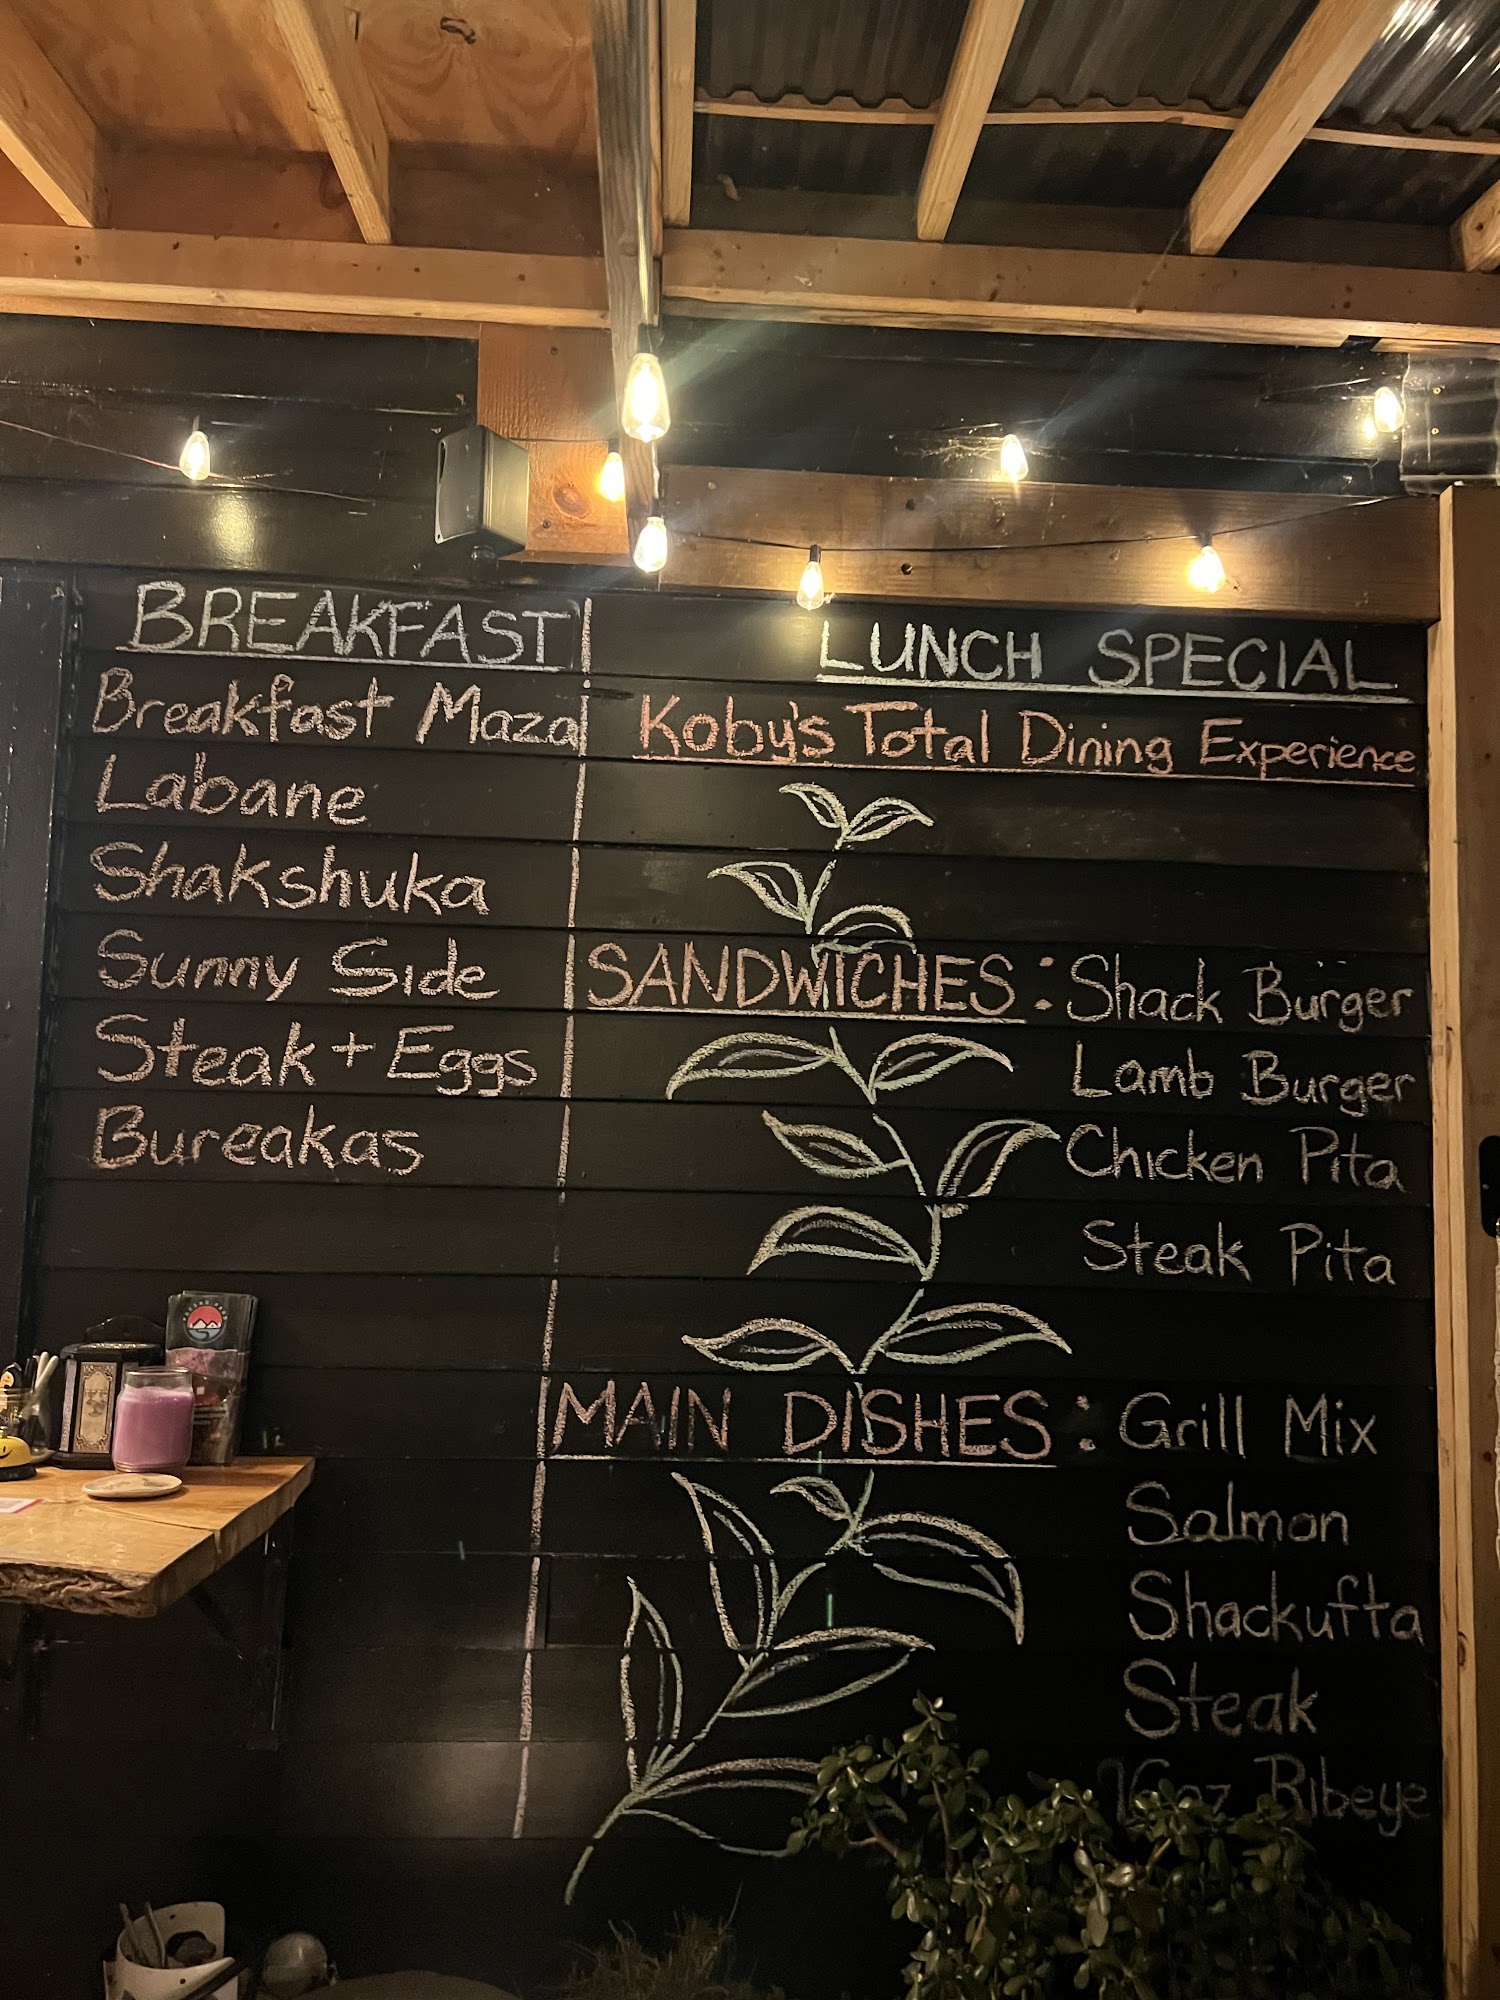 BREAKFAST
Breakfast Maza
Labane
Shakshuka
Sunny Side
Steak + Eggs
Bureakas
LUNCH SPECIAL
Koby's Total Dining Experience
SANDWICHES : Shack Burger
Lamb Burger
Chicken Pita
Steak Pita
MAIN DISHES : Grill Mix
Salmon
Shackufta
Steak
16oz Ribeye